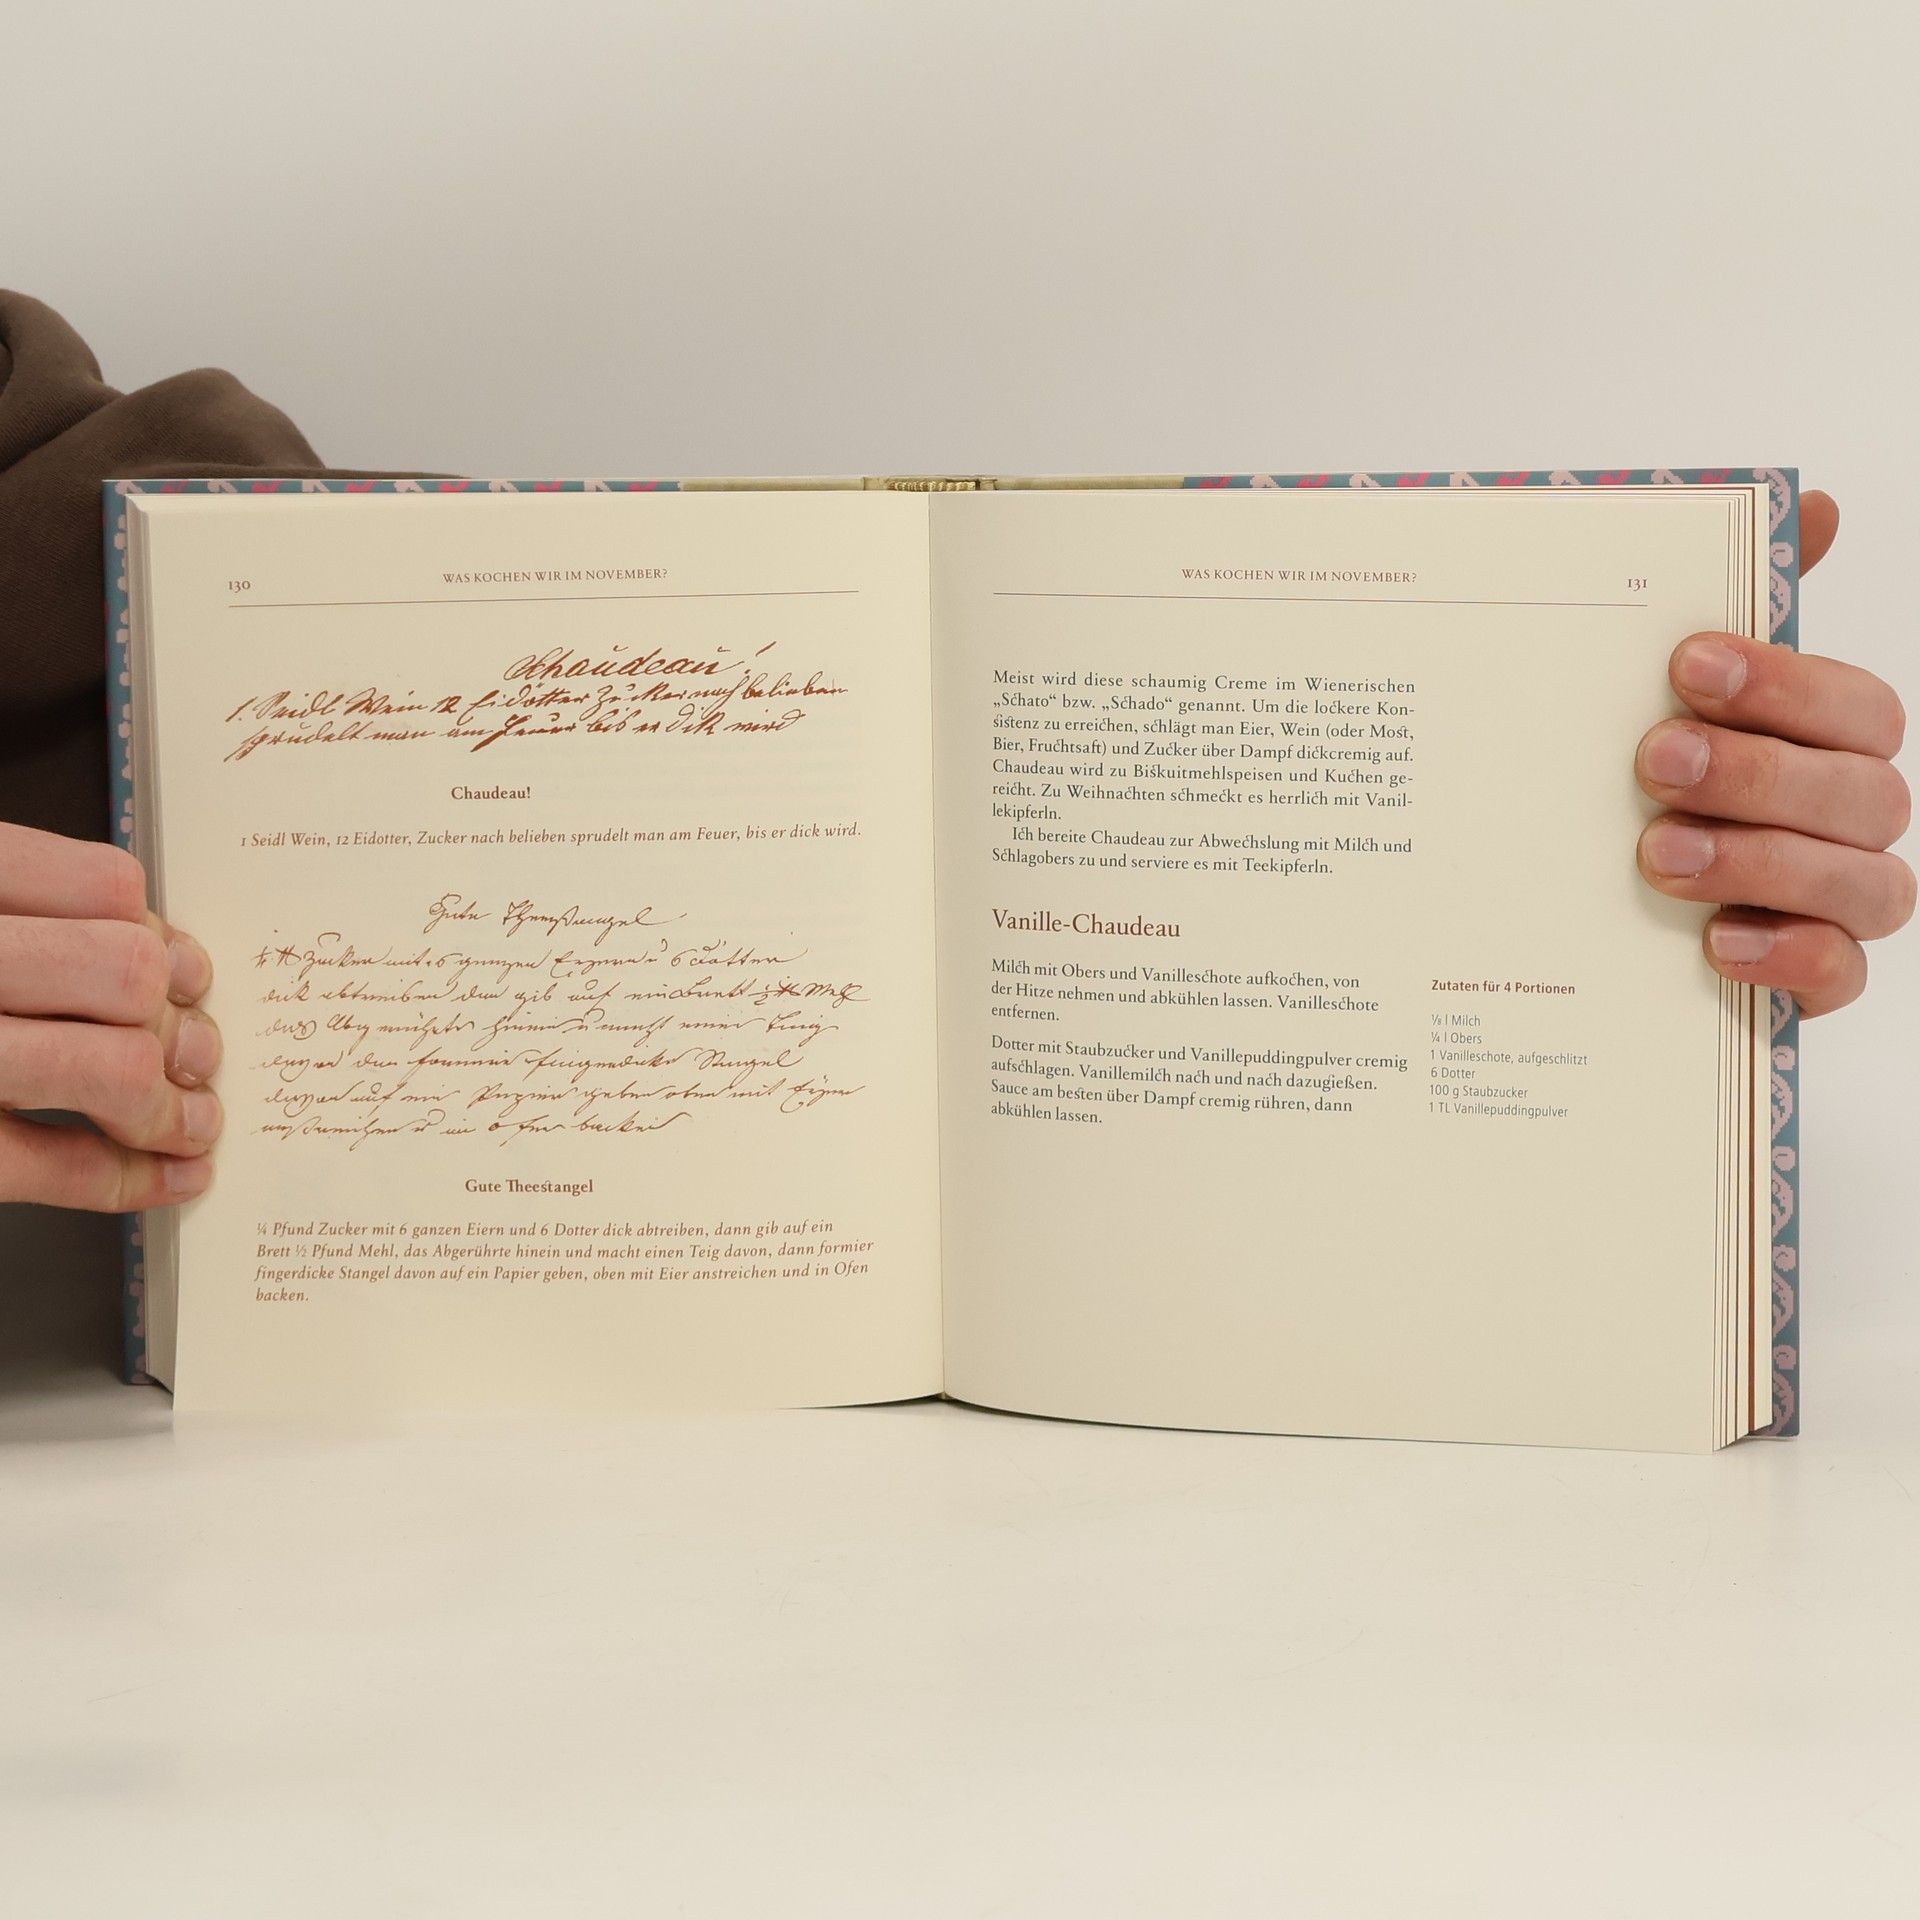 130
WAS KOCHEN WIR IM NOVEMBER?
Chaudeau!
1. Seidl Wein 12 Eidötter Zucker nach belieben
sprudelt man am Feuer bis er dik wird
Chaudeau!
1 Seidl Wein, 12 Eidotter, Zucker nach belieben sprudelt man am Feuer, bis er dick wird.
Gute Theestangel
Zucker mit 6 ganzen Eyern u 6 Dötter
dick abtreiben dan gib auf ein Brett ½ ℔ Mehl
das Abgerührte hinein u macht einen Teig
davon dan formier fingerdicke Stangel
davon auf ein Papier geben oben mit Eyer
anstreichen u in Ofen backen
Gute Theestangel
¼ Pfund Zucker mit 6 ganzen Eiern und 6 Dotter dick abtreiben, dann gib auf ein
Brett ½ Pfund Mehl, das Abgerührte hinein und macht einen Teig davon, dann formier
fingerdicke Stangel davon auf ein Papier geben, oben mit Eier anstreichen und in Ofen
backen.
WAS KOCHEN WIR IM NOVEMBER?
131
Meist wird diese schaumig Creme im Wienerischen
„Schato“ bzw. „Schado“ genannt. Um die lockere Kon-
sistenz zu erreichen, schlägt man Eier, Wein (oder Most,
Bier, Fruchtsaft) und Zucker über Dampf dickcremig auf.
Chaudeau wird zu Biskuitmehlspeisen und Kuchen ge-
reicht. Zu Weihnachten schmeckt es herrlich mit Vanil-
lekipferln.
Ich bereite Chaudeau zur Abwechslung mit Milch und
Schlagobers zu und serviere es mit Teekipferln.
Vanille-Chaudeau
Milch mit Obers und Vanilleschote aufkochen, von
der Hitze nehmen und abkühlen lassen. Vanilleschote
entfernen.
Dotter mit Staubzucker und Vanillepuddingpulver cremig
aufschlagen. Vanillemilch nach und nach dazugießen.
Sauce am besten über Dampf cremig rühren, dann
abkühlen lassen.
Zutaten für 4 Portionen
⅛ l Milch
¼ l Obers
1 Vanilleschote, aufgeschlitzt
6 Dotter
100 g Staubzucker
1 TL Vanillepuddingpulver